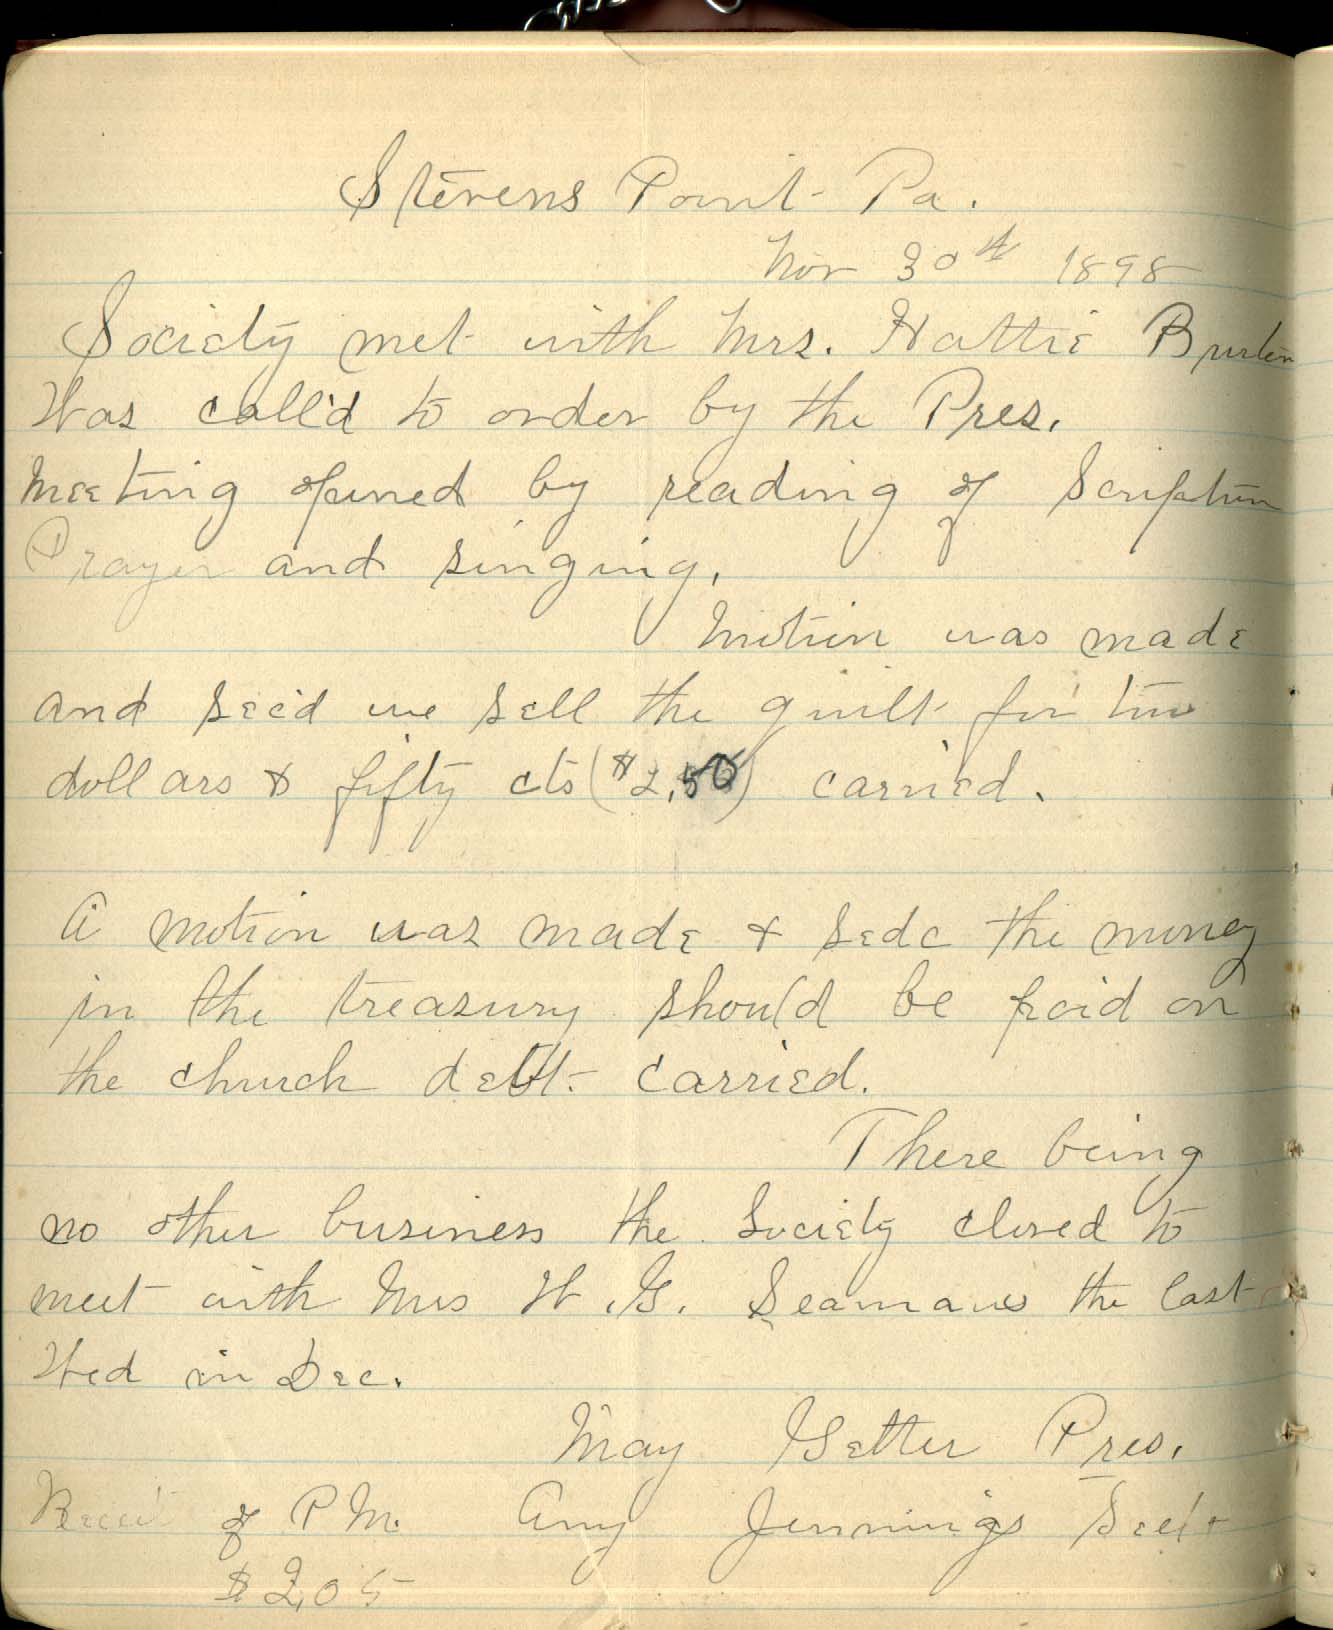 Stevens Point Pa.
Nov 30th 1898
Society met with Mrs. Hattie
Was call'd to order by the Pres.
Meeting opened by reading of Scripture
Prayer and singing.
Motion was made
and Sec'd we sell the quilt for two
dollars & fifty cts ($2.50) carried.
A motion was made & Sedc the money
in the treasury should be paid on
the church debt. carried.
There being
no other business the Society closed to
meet with Mrs W. G. Seamans the last
Wed in Dec.
May Getter Pres.
of P.M. Amy Jennings
$2.05